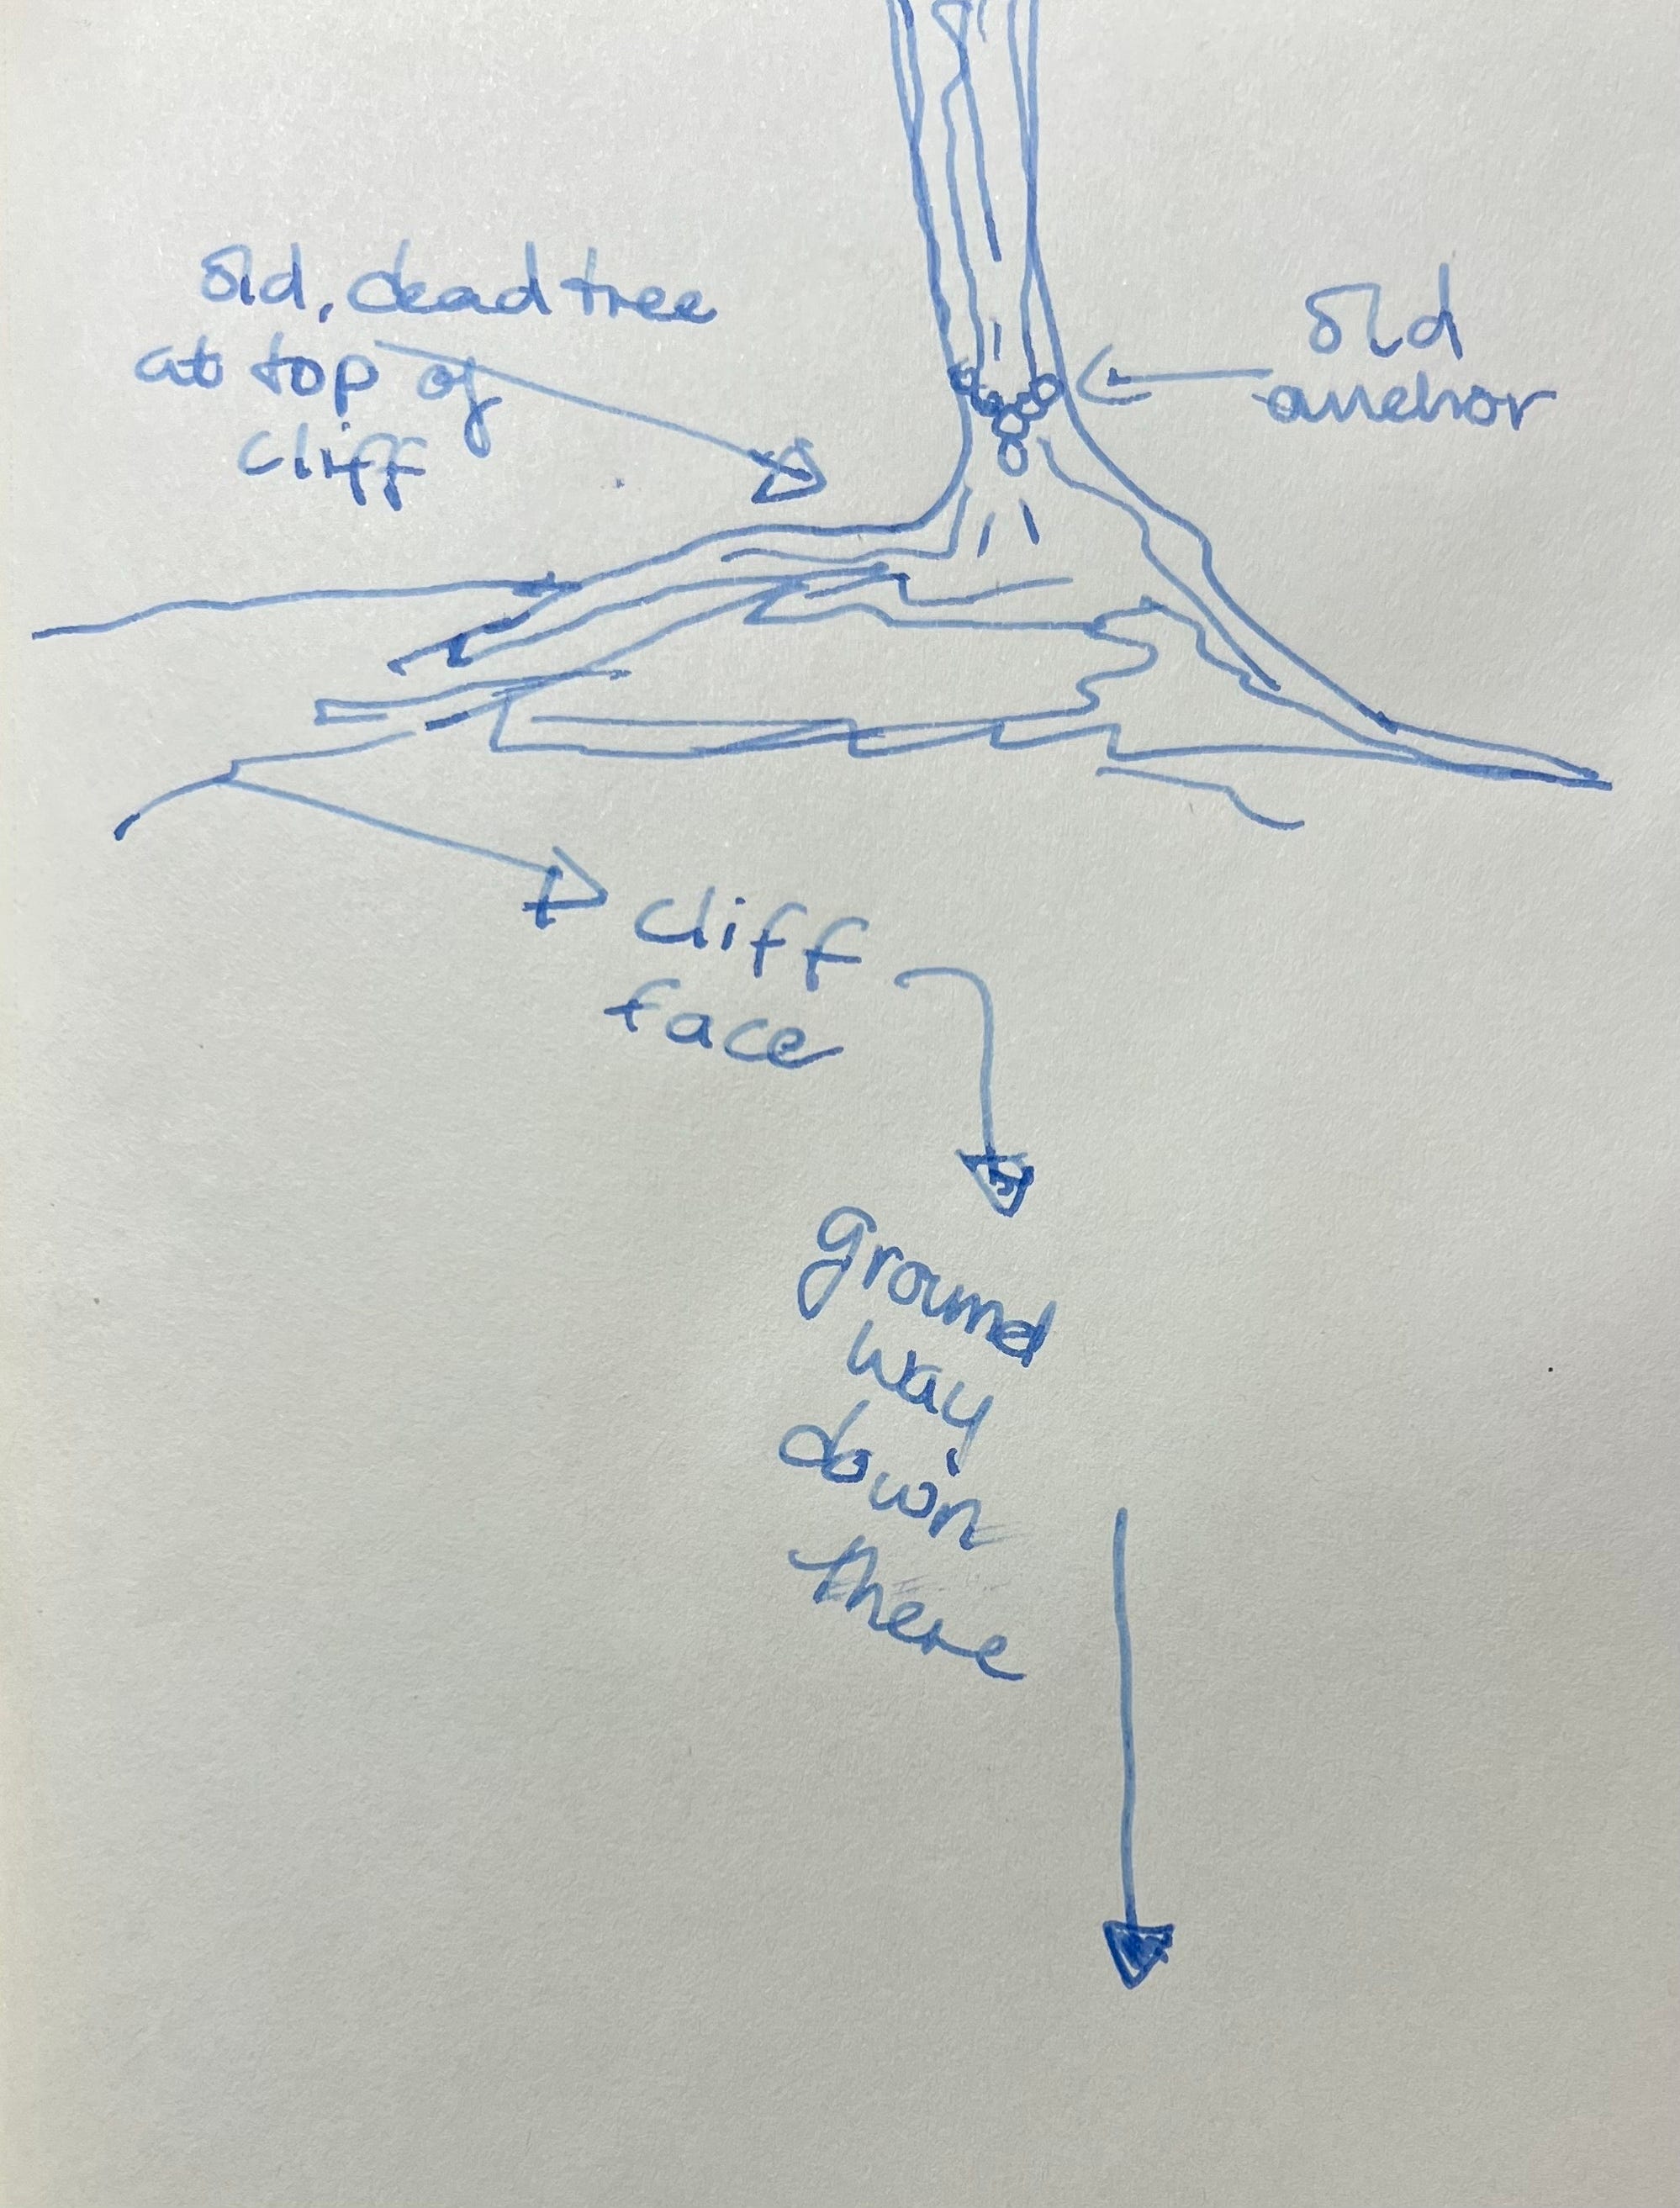 old, dead tree
at top of
cliff
old
anchor
cliff
face
ground
way
down
there